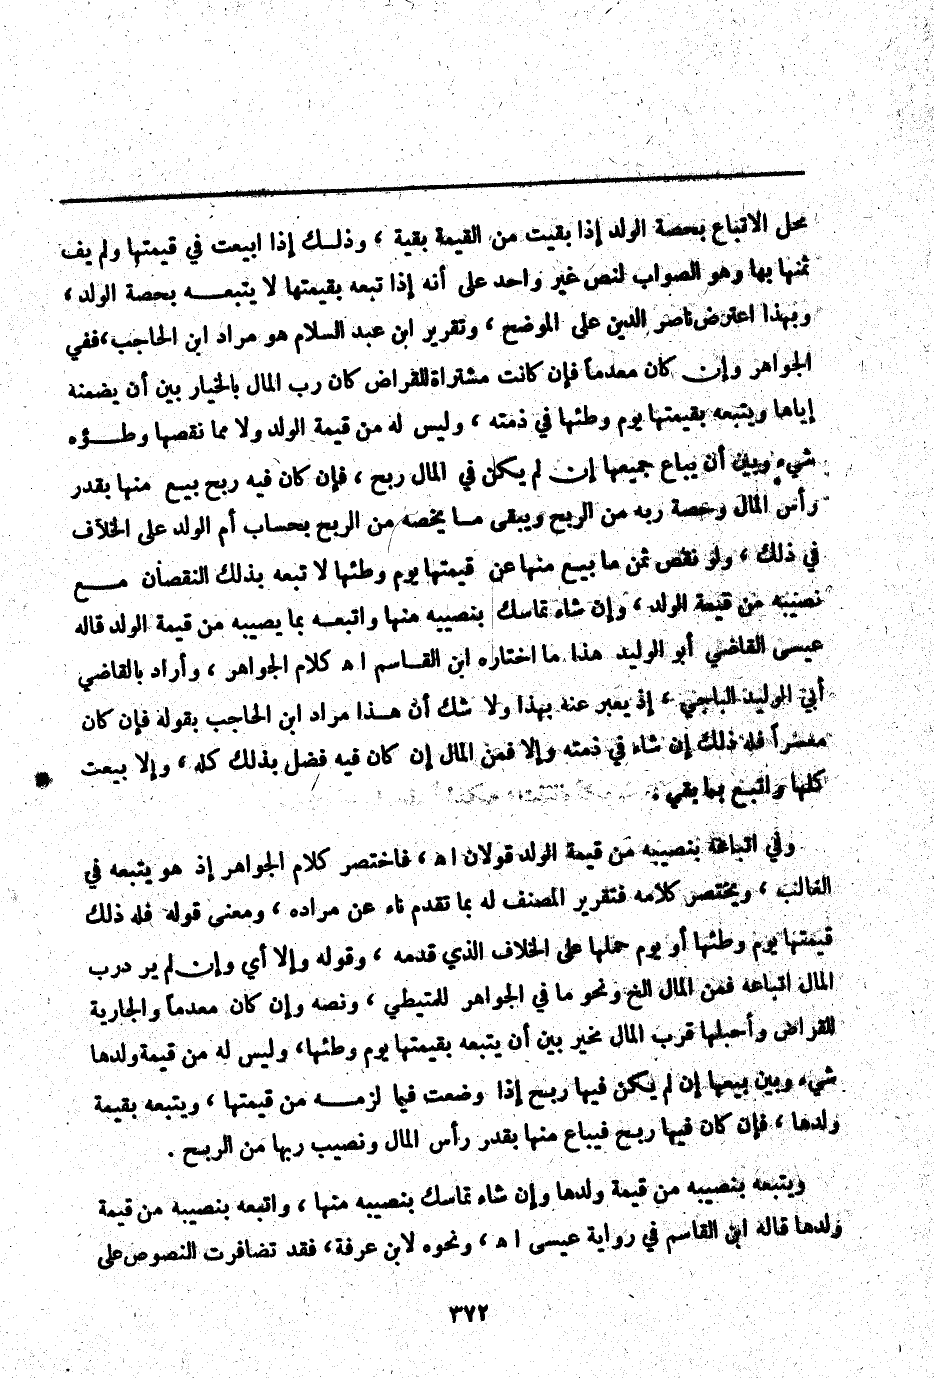 محل الاتباع بحصة الولد إذا بقيت من القيمة بقية ، وذلك إذا ابيعت في قيمتها ولم يف
ثمنها بها وهو الصواب لنص غير واحد على أنه إذا تبعه بقيمتها لا يتبعه بحصة الولد ،
وبهذا اعترض ناصر الدين على الموضح ، وتقرير ابن عبد السلام هو مراد ابن الحاجب،ففي
الجواهر وإن كان معدماً فإن كانت مشتراة للقراض كان رب المال بالخيار بين أن يضمنة
إياها ويتبعه بقيمتها يوم وطئها في ذمته ، وليس له من قيمة الولد ولا مما نقصها وطؤه
شيء وبين أن يباع جميعها إن لم يكن في المال ربح ، فإن كان فيه ربح بيع منها بقدر
رأس المال وحصة ربه من الربح ويبقى ما يخصه من الربح بحساب أم الولد على الخلاف
في ذلك ، ولو نقص ثمن ما بيع منها عن قيمتها يوم وطئها لا تبعه بذلك النقصان مع
نصيبه من قيمة الولد ، وإن شاء تماسك بنصيبه منها واتبعه بما يصيبه من قيمة الولد قاله
عيسى القاضي أبو الوليد هذا ما اختاره ابن القاسم ا ه كلام الجواهر ، وأراد بالقاضي
أبي الوليد الباجي ، إذ يعبر عنه بهذا ولا شك أن هذا مراد ابن الحاجب بقوله فإن كان
معسراً فله ذلك إن شاء في ذمته وإلا فمن المال إن كان فيه فضل بذلك كله ، وإلا بيعت
كلها واتبع بما بقي .
وفي اتباعه بنصيبه من قيمة الولد قولان ا ه ، فاختصر كلام الجواهر إذ هو يتبعه في
الغالب ، ويختصر كلامه فتقرير المصنف له بما تقدم ناء عن مراده ، ومعنى قوله فله ذلك
قيمتها يوم وطئها أو يوم حملها على الخلاف الذي قدمه ، وقوله وإلا أي وإن لم ير درب
المال اتباعه فمن المال الخ ونحو ما في الجواهر للمتيطي ، ونصه وإن كان معدماً والجارية
للقراض وأحبلها قرب المال مخير بين أن يتبعه بقيمتها يوم وطئها، وليس له من قيمة ولدها
شيء وبين بيعها إن لم يكن فيها ربح إذا وضعت فيما لزمه من قيمتها ، ويتبعه بقيمة
ولدها ، فإن كان فيها ربح فيباع منها بقدر رأس المال ونصيب ربها من الربح .
ويتبعه بنصيبه من قيمة ولدها وإن شاء تماسك بنصيبه منها ، واتبعه بنصيبه من قيمة
ولدها قاله ابن القاسم في رواية عيسى ا ه ، ونحوه لابن عرفة، فقد تضافرت النصوص على
٣٧٢